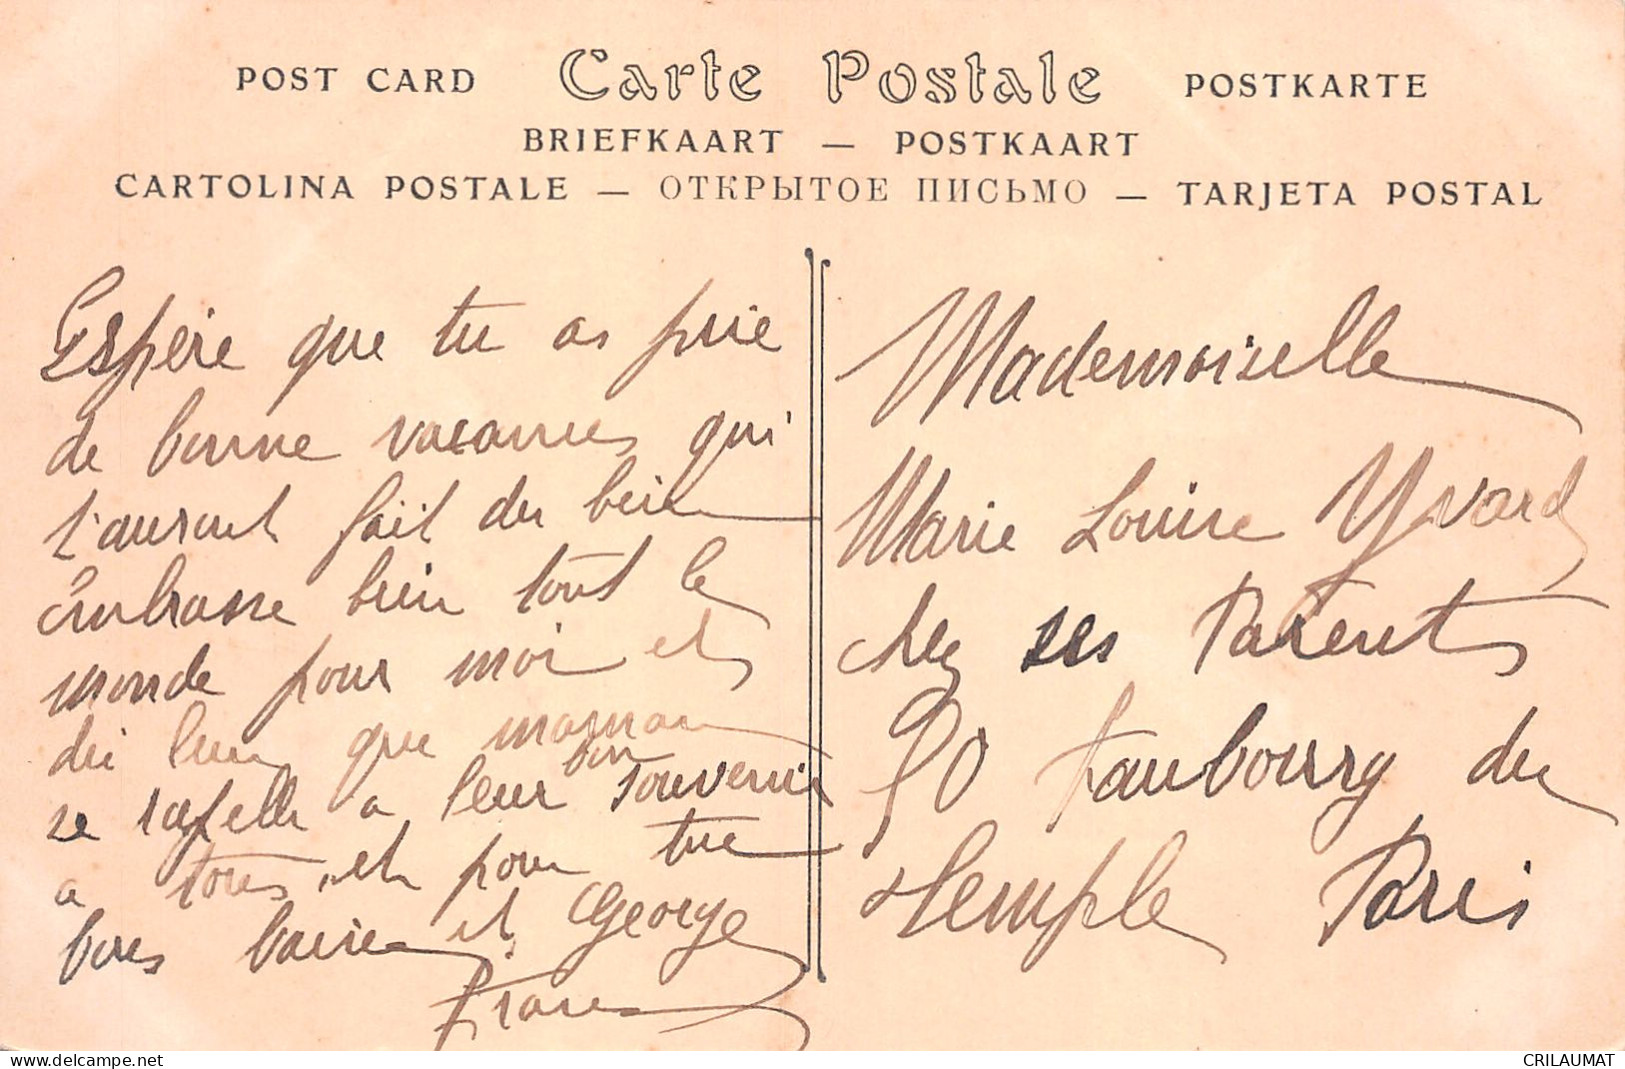 POST CARD Carte Postale POSTKARTE
BRIEFKAART — POSTKAART
CARTOLINA POSTALE — ОТКРЫТОЕ ПИСЬМО — TARJETA POSTAL
Espère que tu as prie
de bonne vacances qui
t'auront fait du bein
Embrasse bien tout le
monde pour moi et
di leur que maman
se rapelle a leur bon souvenir
a tous et pour tue
bons baiser et George
Mademoiselle
Marie Louise Yvard
chez ses Parents
90 Faubourg du
Temple Paris
www.delcampe.net
CRILAUMAT